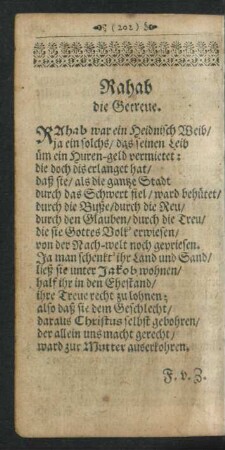 (202)
Rahab
die Getreue.
RAhab war ein Heidnisch Weib/
ja ein solchs/ das seinen Leib
üm ein Huren-geld vermietet:
die doch dis erlanget hat/
daß sie/ als die gantze Stadt
durch das Schwert fiel/ ward behütet/
durch die Buße/ durch die Reu/
durch den Glauben/ durch die Treu/
die sie Gottes Volk' erwiesen/
von der Nach-welt noch gepriesen.
Ja man schenkt' ihr Land und Sand/
ließ sie unter Jakob wohnen/
half ihr in den Ehestand/
ihre Treue recht zu lohnen:
also daß sie dem Geschlecht/
daraus Christus selbst gebohren/
der allein uns macht gerecht/
ward zur Mutter auserkohren.
F. v. Z.